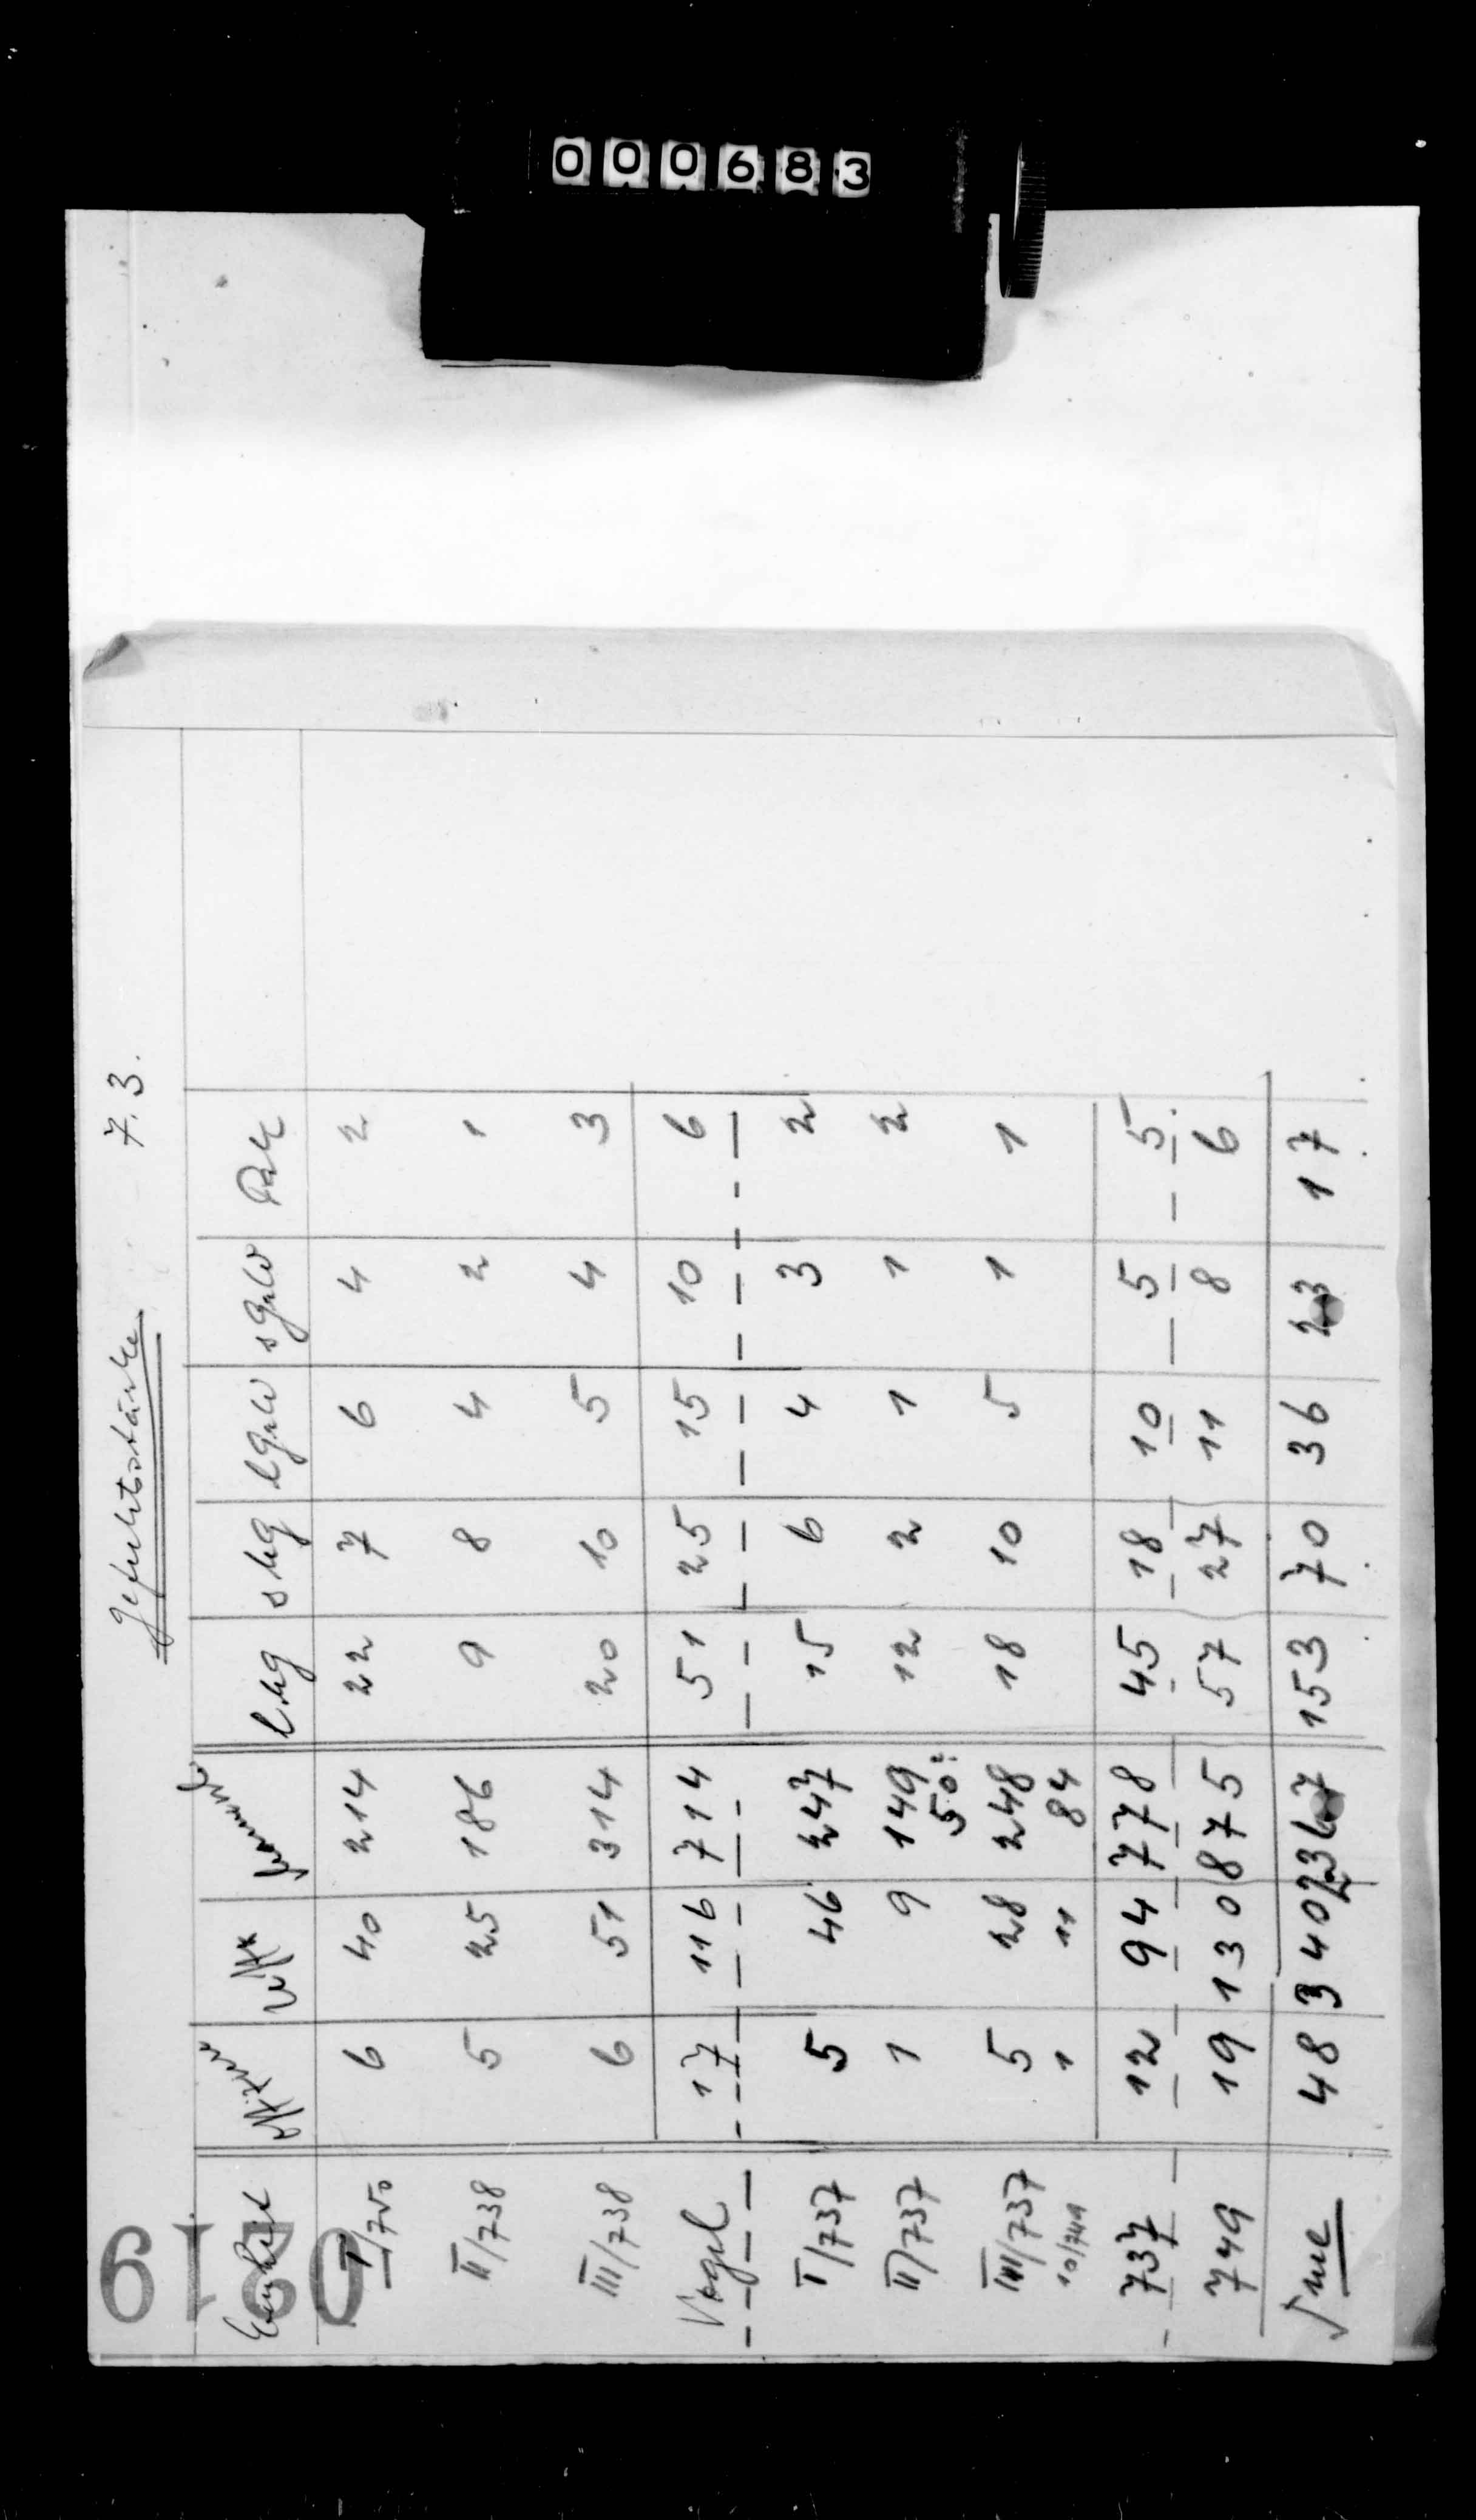 000683
Gefechtsstärke 7.3.
Einheit Offiziere Uffz Mannsch l.Mg s Mg lGrW sGrW Pak
I/750 6 40 214 22 7 6 4 2
II/738 5 25 186 9 8 4 2 1
III/738 6 51 314 20 10 5 4 3
Vogel 17 116 714 51 25 15 10 6
I/737 5 46 247 15 6 4 3 2
II/737 1 9 149 12 2 1 1 2
50?
III/737 5 28 248 18 10 5 1 1
10/749 1 11 84
737 12 94 778 45 18 10 5 5
749 19 130 875 57 27 11 8 6
Sme 48 340 2367 153 70 36 23 17